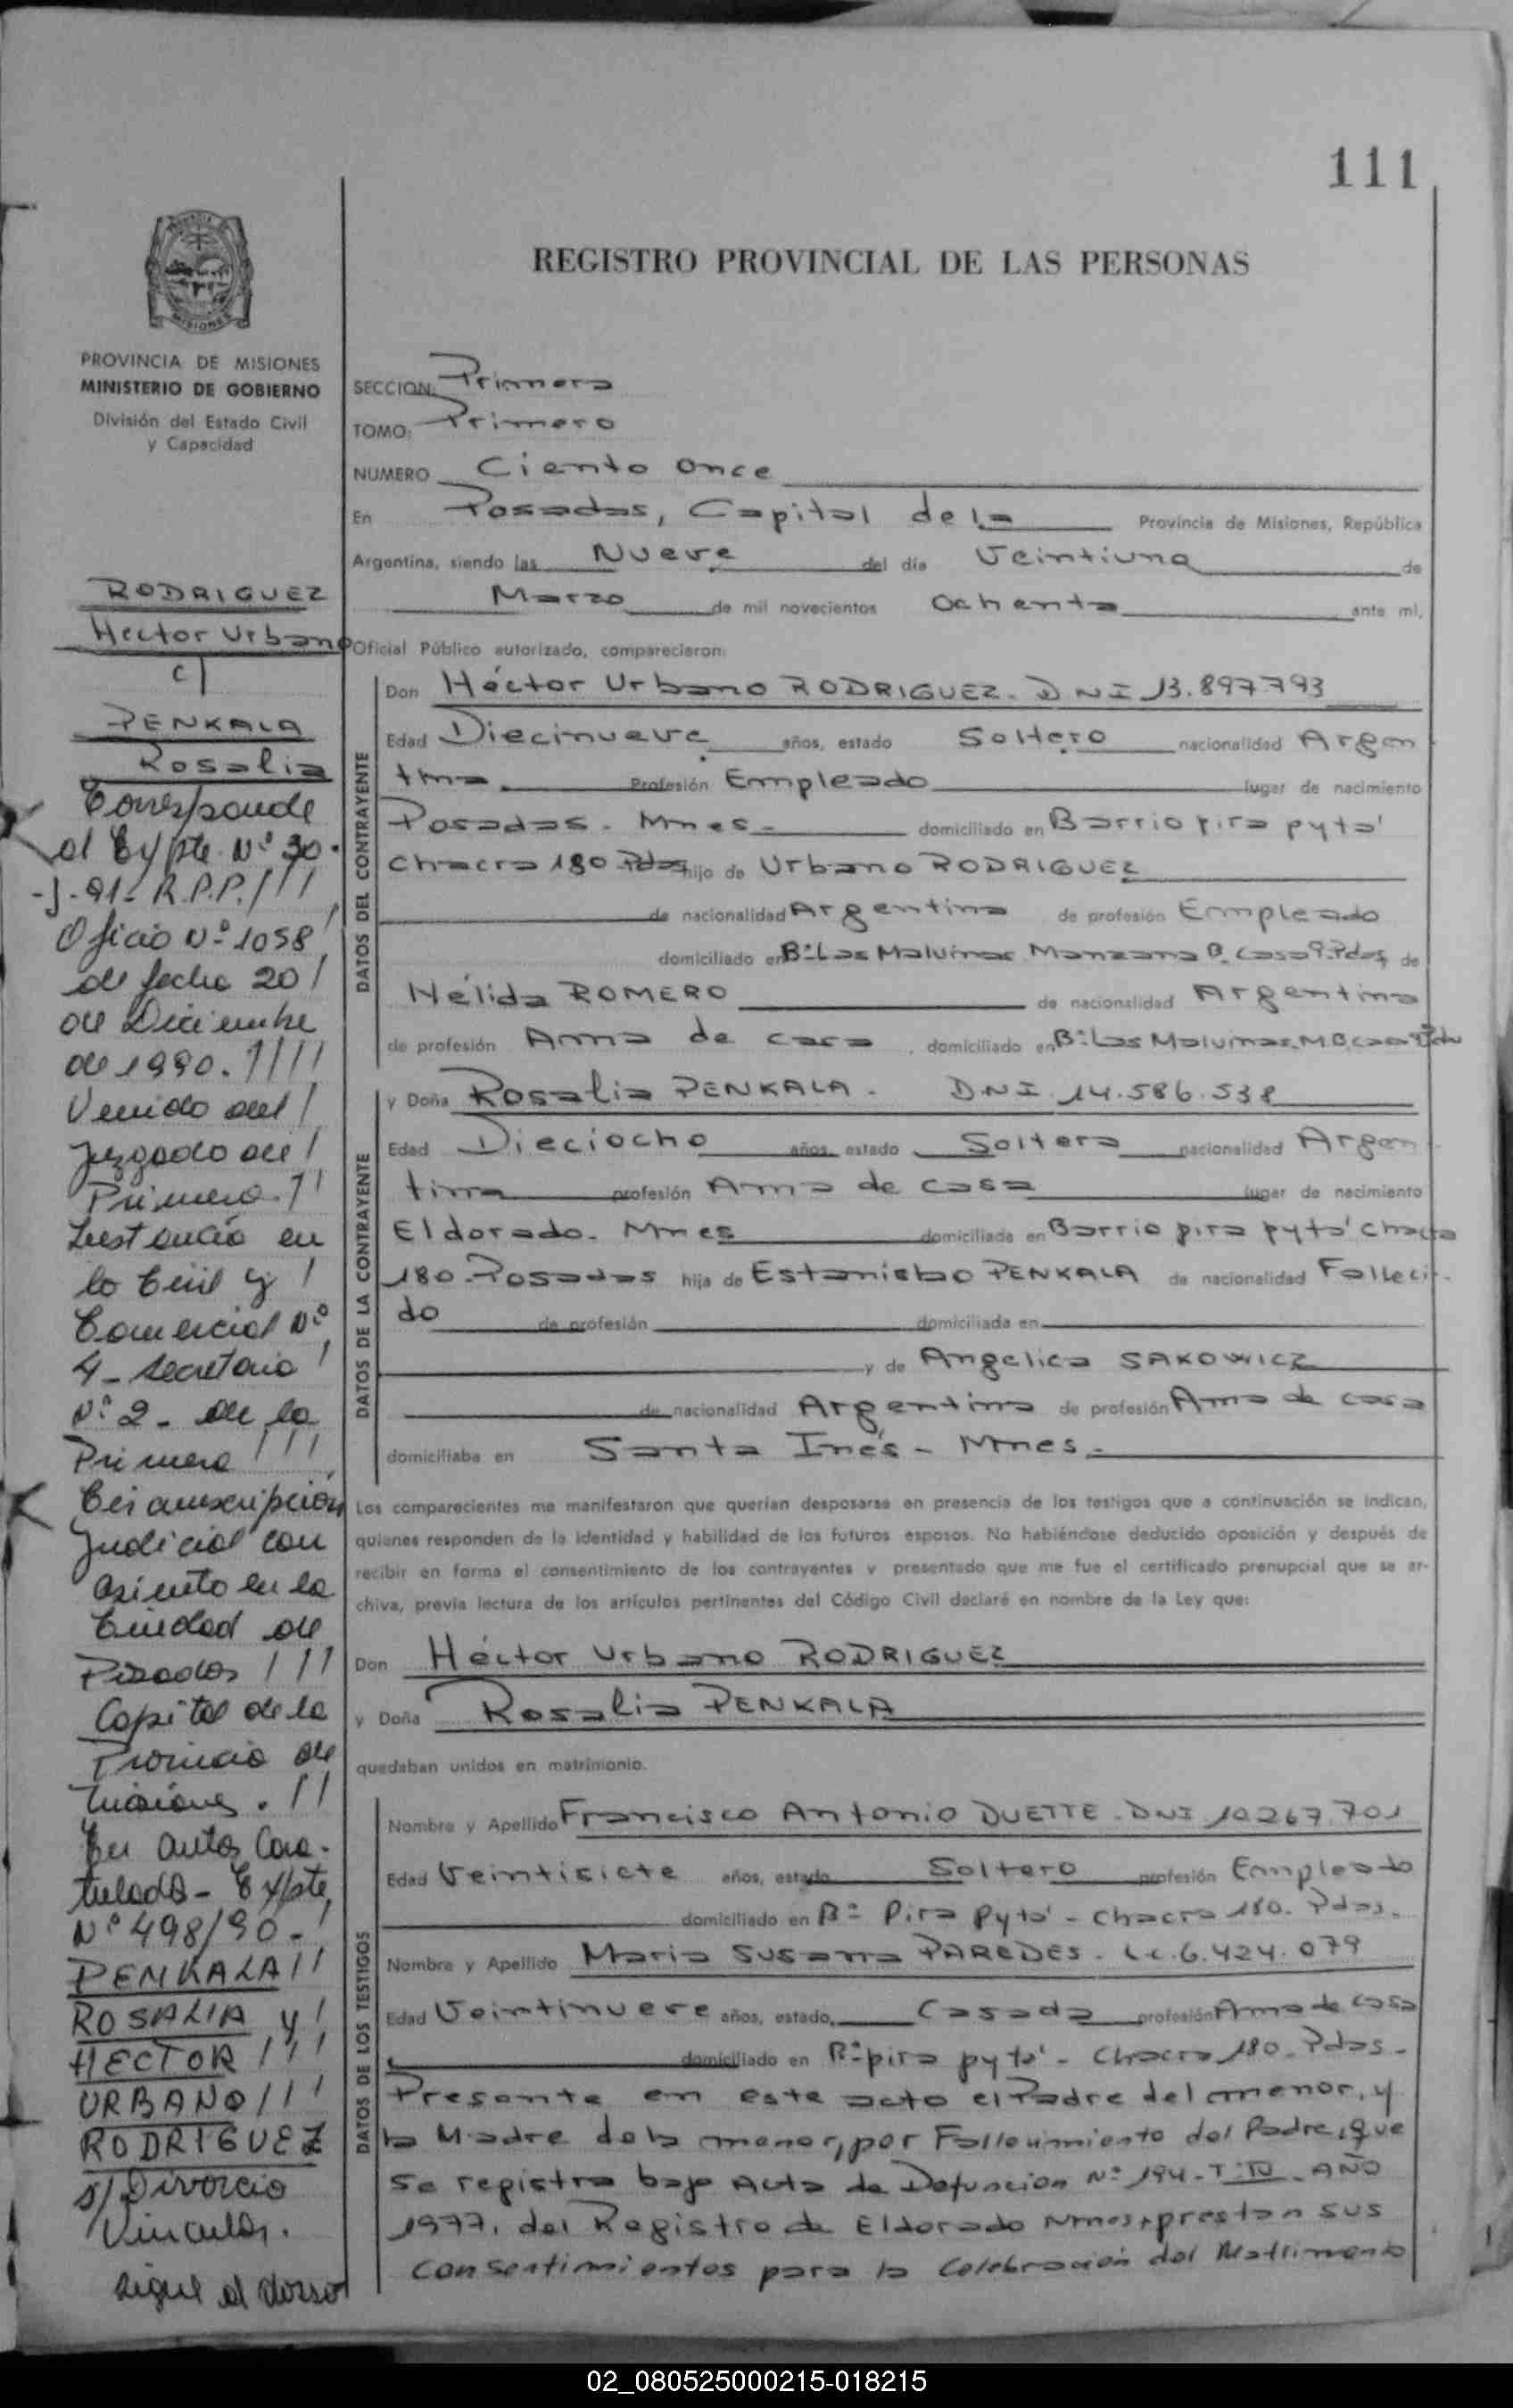 111
REGISTRO PROVINCIAL DE LAS PERSONAS
MISIONES
PROVINCIA DE MISIONES
MINISTERIO DE GOBIERNO
División del Estado Civil
y Capacidad
RODRIGUEZ
Hector Urbano
c/
PENKALA
Rosalia
Corresponde
al Expte. Nº 30-
-J-91- R.P.P.///
Oficio Nº 1058/
de fecha 20/
de Diciembre
de 1990.////
Venido del/
Juzgado de/
Primera//
Instancia en
lo Civil y /
Comercial Nº
4- Secretaria/
Nº 2- de la
Primera ///
Circunscripción
Judicial con
asiento en la
Ciudad de
Posadas ///
Capital de la
Provincia de
Misiones. //
En autos Cara-
tulado- Expte,
Nº 498/90-/
PENKALA//
ROSALIA y/
HECTOR ///
URBANO///
RODRIGUEZ
s/Divorcio
Vincular.
sigue al dorso
SECCION: Primera
TOMO: Primero
NUMERO Ciento once
En Posadas, Capital de la Provincia de Misiones, República
Argentina, siendo las Nueve del día Veintiuno de
Marzo de mil novecientos Ochenta ante mí,
Oficial Público autorizado, comparecieron:
DATOS DEL CONTRAYENTE
Don Héctor Urbano RODRIGUEZ. DNI 13.897.793
Edad Diecinueve años, estado Soltero nacionalidad Argen
tina Profesión Empleado lugar de nacimiento
Posadas. Mnes. domiciliado en Barrio pira pytá
Chacra 180 Pdas hijo de Urbano RODRIGUEZ
de nacionalidad Argentina de profesión Empleado
domiciliado en Bº Las Malvinas Manzana B. Casa 9. Pdas, de
Nélida ROMERO de nacionalidad Argentina
de profesión Ama de casa, domiciliado en Bº Las Malvinas. M.B. casa 9 Pdas
DATOS DE LA CONTRAYENTE
y Doña Rosalia PENKALA. D.N.I. 14.586.538
Edad Dieciocho años, estado Soltera nacionalidad Argen
tina profesión Ama de casa lugar de nacimiento
Eldorado. Mnes domiciliada en Barrio pira pytá chacra
180. Posadas hija de Estanislao PENKALA de nacionalidad Falleci-
do de profesión domiciliada en
y de Angelica SAKOWICZ
de nacionalidad Argentina de profesión Ama de casa
domiciliaba en Santa Inés - Mnes.
Los comparecientes me manifestaron que querían desposarse en presencia de los testigos que a continuación se indican,
quienes responden de la identidad y habilidad de los futuros esposos. No habiéndose deducido oposición y después de
recibir en forma el consentimiento de los contrayentes y presentado que me fue el certificado prenupcial que se ar-
chiva, previa lectura de los artículos pertinentes del Código Civil declaré en nombre de la Ley que:
Don Héctor Urbano RODRIGUEZ
y Doña Rosalia PENKALA
quedaban unidos en matrimonio.
DATOS DE LOS TESTIGOS
Nombre y Apellido Francisco Antonio DUETTE. DNI 10.267.701
Edad Veintisiete años, estado Soltero profesión Empleado
domiciliado en Bº Pira Pytá - Chacra 180. Pdas.
Nombre y Apellido Maria Susana PAREDES. L.C. 6.424.079
Edad Veintinueve años, estado, Casada profesión Ama de casa
domiciliado en Bº pira pytá - Chacra 180. Pdas.
Presente en este acto el Padre del menor, y
la Madre de la menor, por Fallecimiento del Padre, que
se registra bajo Acta de Defuncion Nº 194. T: IV. AÑO
1977. del Registro de Eldorado Mnes, prestan sus
consentimientos para la Celebración del Matrimonio
02_080525000215-018215